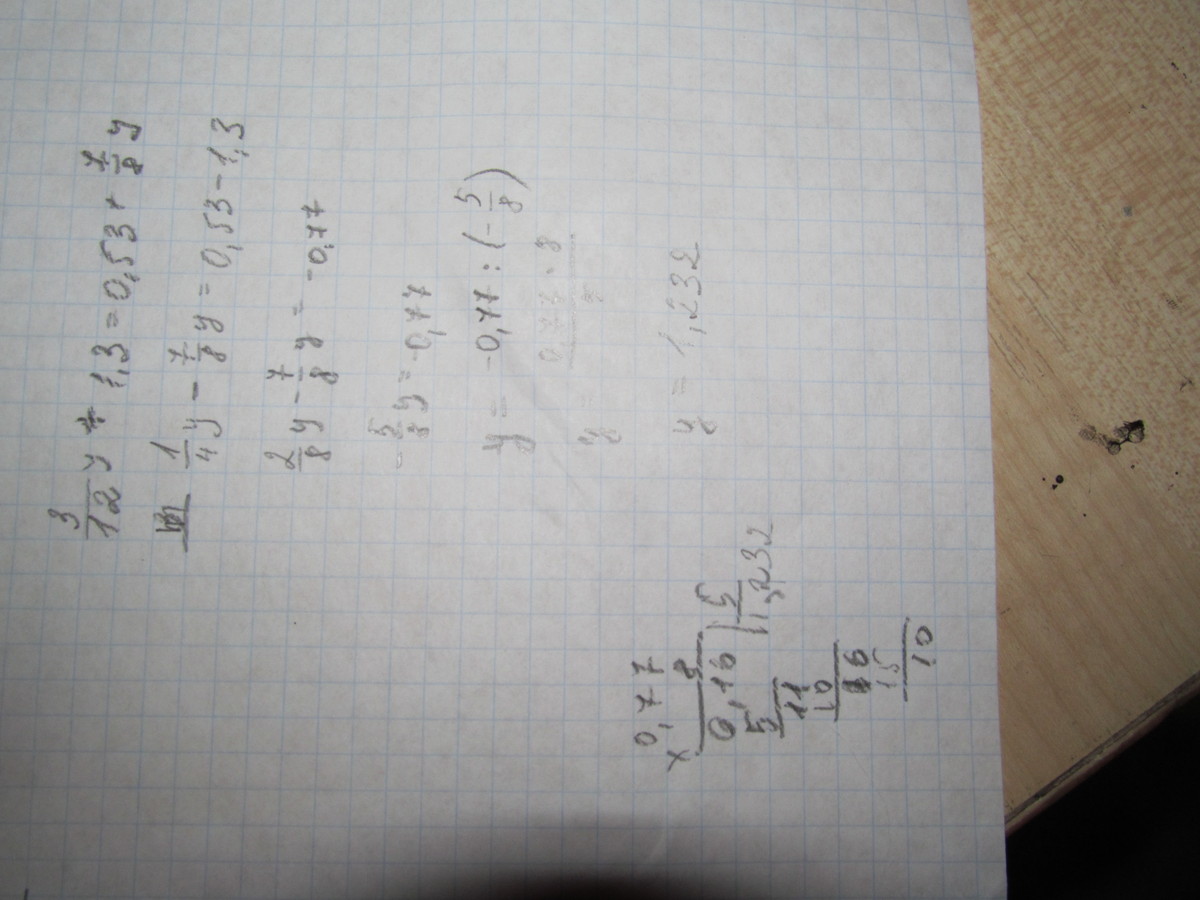 3/12 y + 1,3 = 0,53 + 7/8 y
1/4 y - 7/8 y = 0,53 - 1,3
2/8 y - 7/8 y = -0,77
-5/8 y = -0,77
y = -0,77 : (-5/8)
y = 0,77 · 8
y = 1,232
0,77
× 8
6,16 | 5
5 1,232
11
10
16
15
10